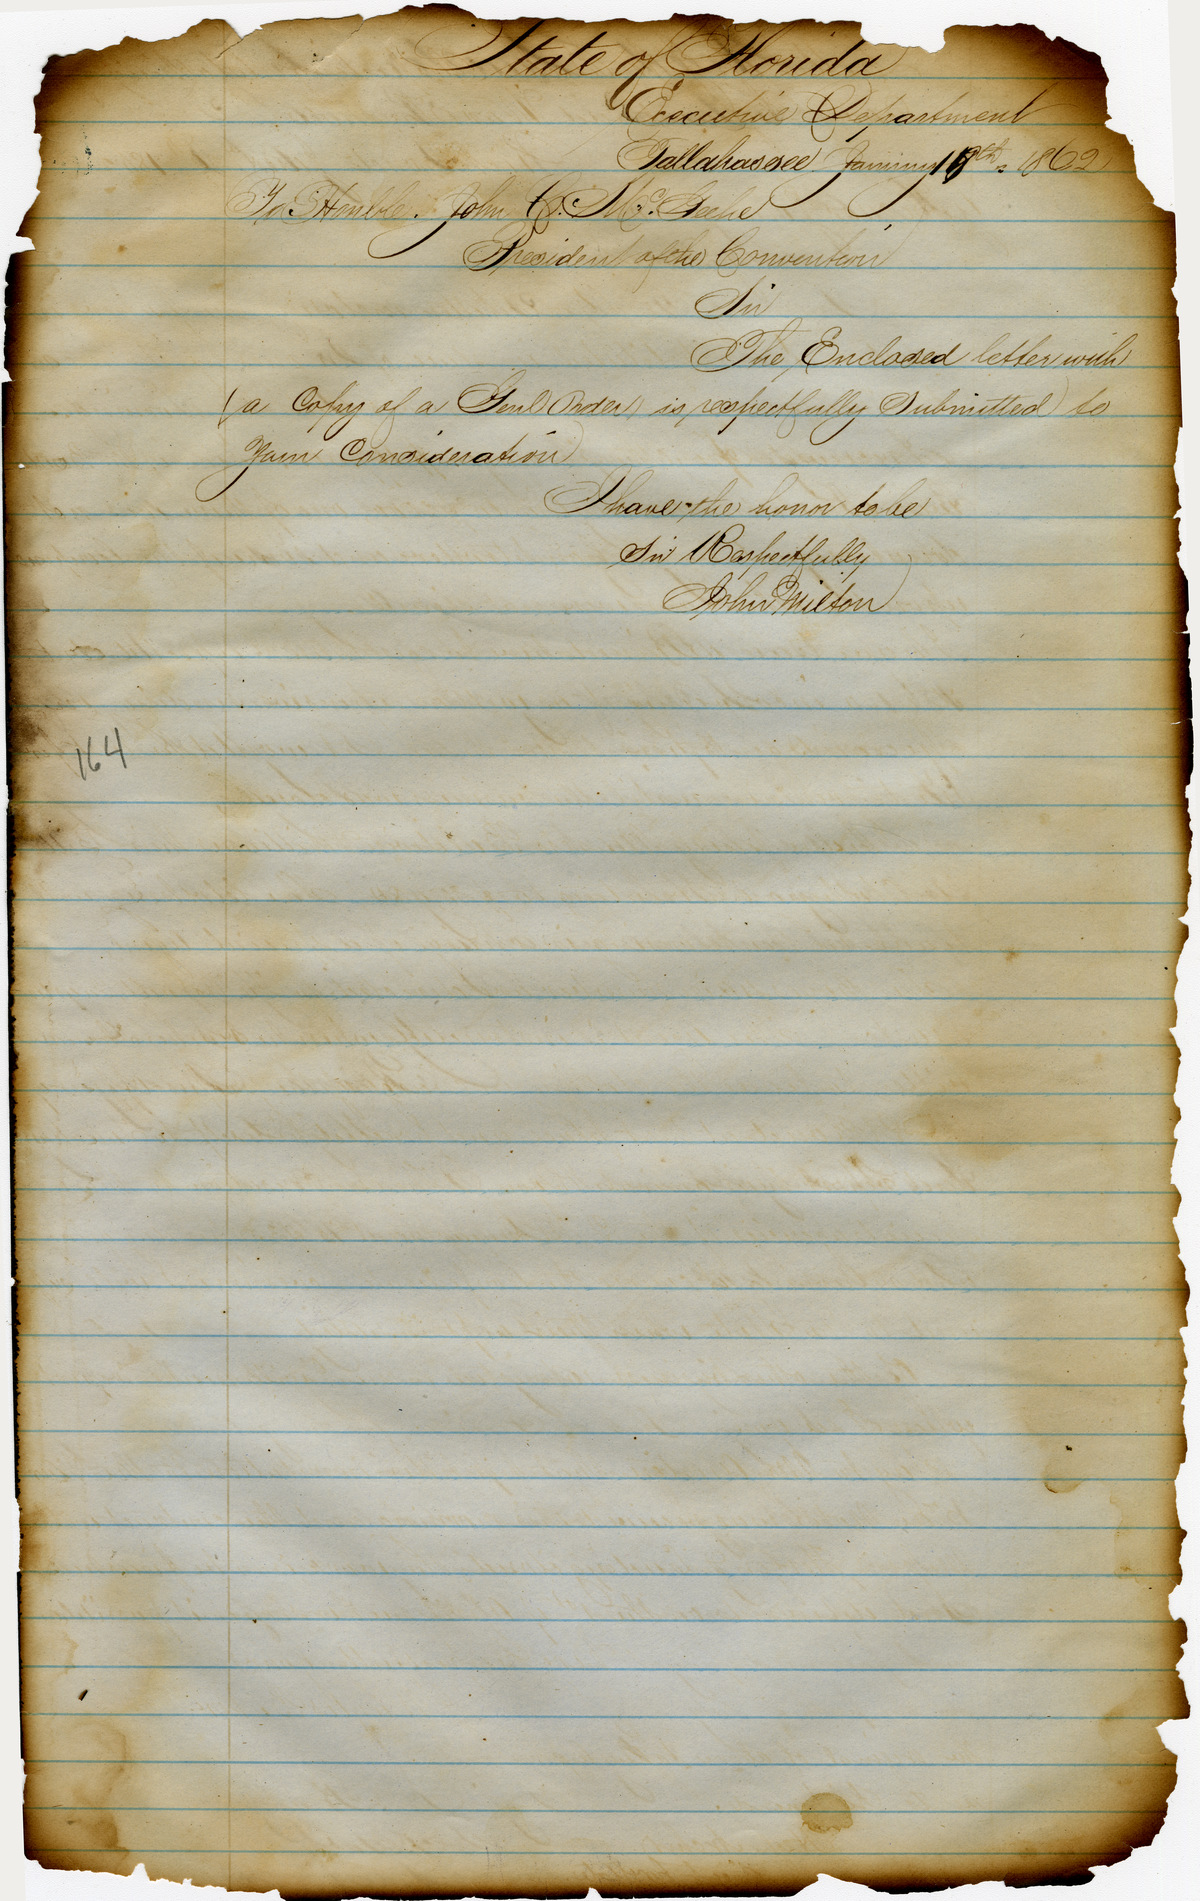 State of Florida
Executive Department
Tallahassee January 18th, 1862
To Honble. John C. McGehe
President of the Convention
Sir
The Enclosed letter with
a Copy of a Genl Order is respectfully Submitted to
Your Consideration
I have the honor to be
Sir Respectfully
John Milton
164